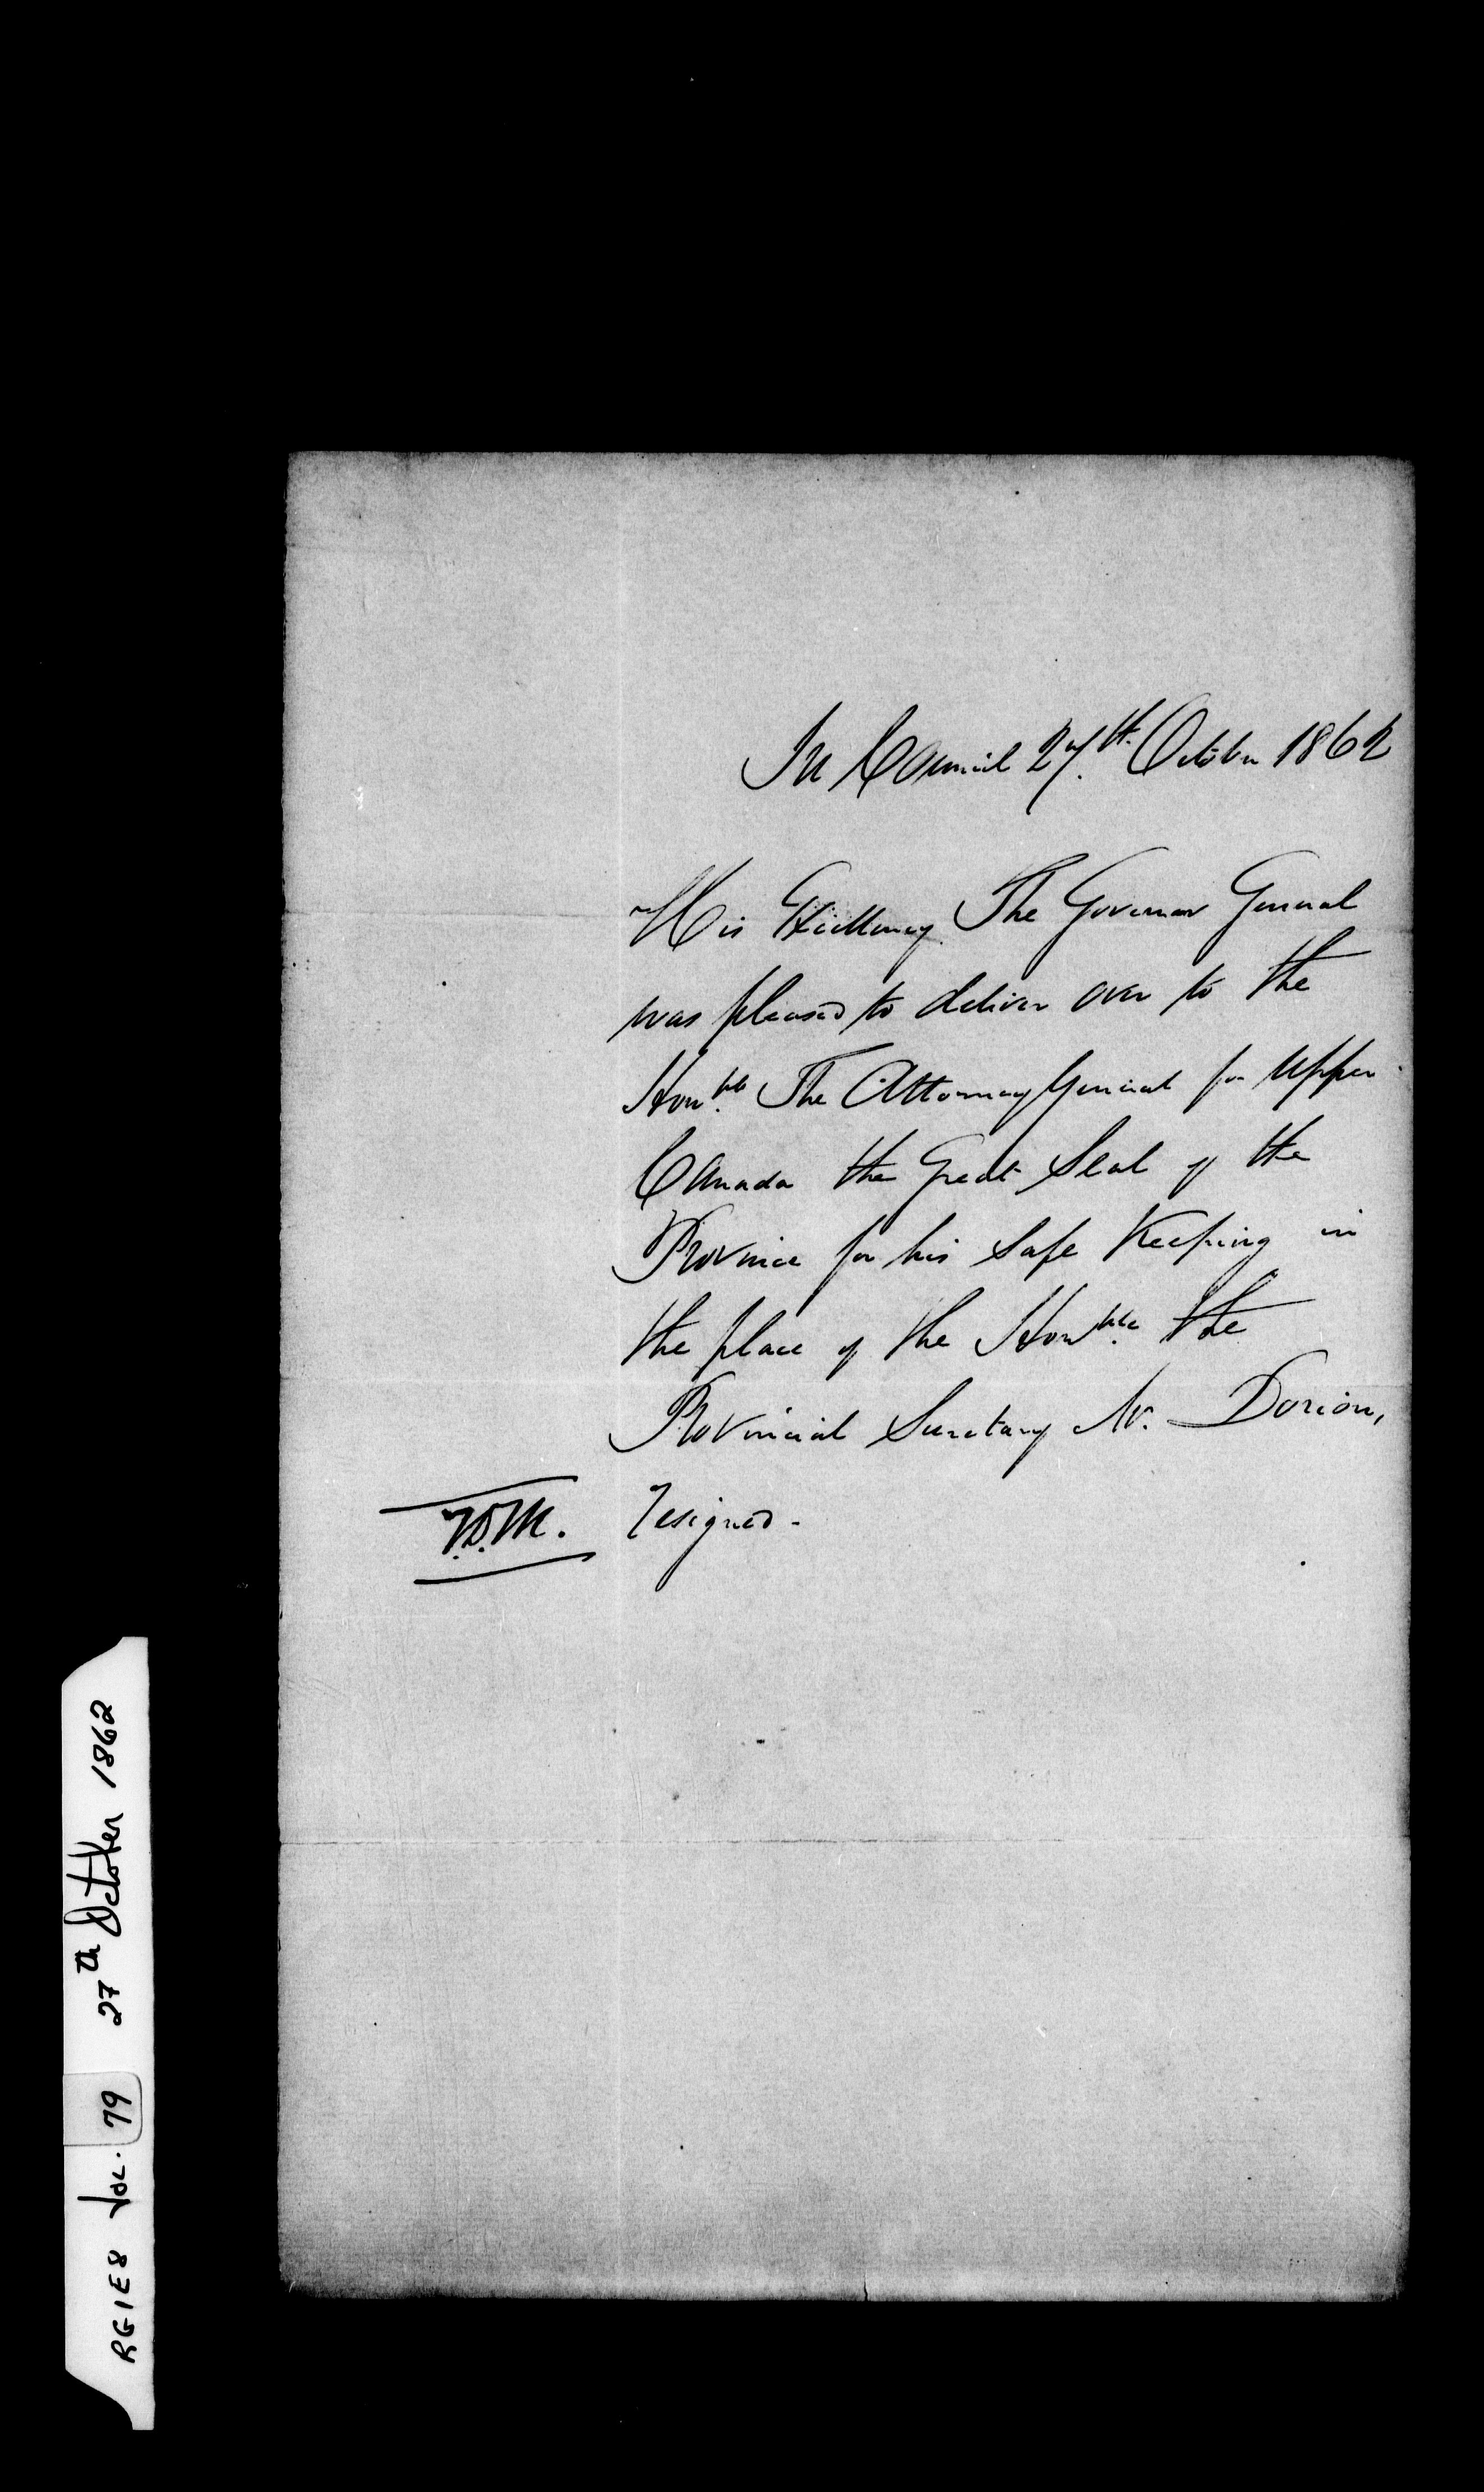 In Council 27th. October 1862
His Excellency The Governor General
was pleased to deliver over to the
Honble. The Attorney General for Upper
Canada the Great Seal of the
Province for his safe Keeping in
the place of the Honble. the
Provincial Secretary Mr. Dorion,
resigned -
RG1E8 Vol. 79 27th October 1862